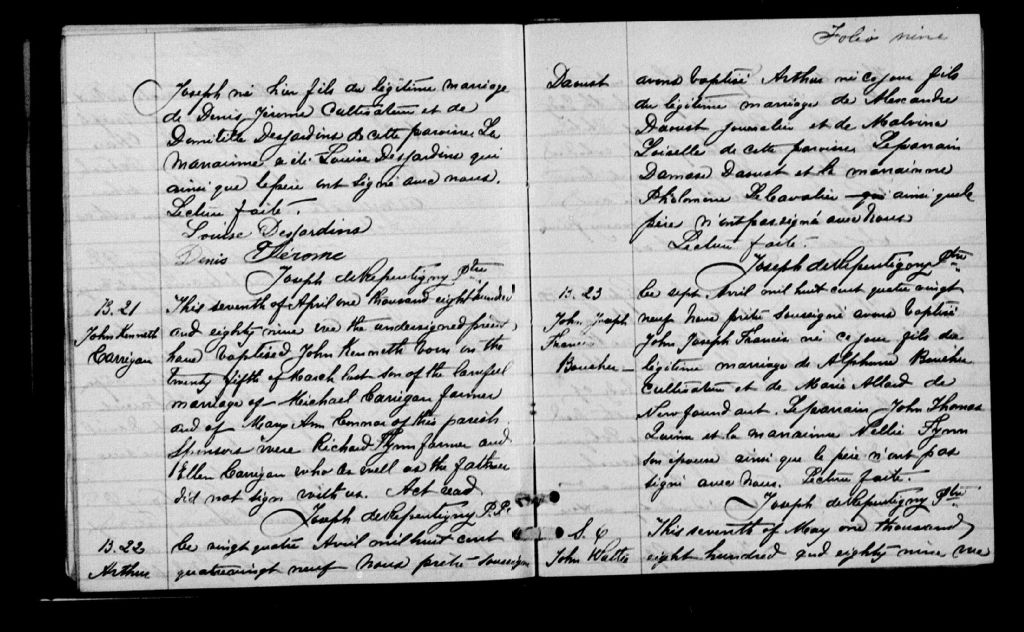 Joseph né hier fils du légitime mariage
de Denis Jérome Cultivateur et de
Domitile Desjardins de cette paroisse La
marainne a été Louise Desjardins qui
ainsi que le père ont signé avec nous.
Lecture faite.
Louise Desjardins
Denis Jérome
Joseph de Repentigny Ptre
B. 21
John Kenneth
Carrigan
This seventh of April one thousand eight hundred
and eighty nine we the undersigned priest
have baptised John Kenneth born on the
twenty fifth of March last son of the lawful
marriage of Michael Carrigan farmer
and of Mary Ann Connor of this parish
Sponsors were Richard Flynn farmer and
Ellen Carrigan who as well as the father
did not sign with us. Act read
Joseph de Repentigny P.P.
B. 22
Arthur
Ce vingt quatre Avril mil huit cent
quatrevingt neuf nous pretre soussigné
Folio nine
Daoust
avons baptisé Arthur né ce jour fils
du légitime mariage de Alexandre
Daoust journalier et de Malvina
Loiselle de cette paroisse Le parrain
Damase Daoust et la marainne
Philomène Lecavalier qui ainsi que le
père n'ont pas signé avec nous
Lecture faite.
Joseph de Repentigny Ptre
B. 23
John Joseph
Francis
Boucher
Ce sept Avril mil huit cent quatre vingt
neuf nous prêtre soussigné avons baptisé
John Joseph Francis né ce jour fils du
légitime mariage de Alphonse Boucher
Cultivateur et de Marie Allard de
Newfound out. Le parrain John Thomas
Quinn et la marainne Nellie Flynn
son épouse ainsi que le père n'ont pas
signé avec nous. Lecture faite.
Joseph de Repentigny Ptre
S. 6
John Walter
This seventh of May one thousand
eight hundred and eighty nine we